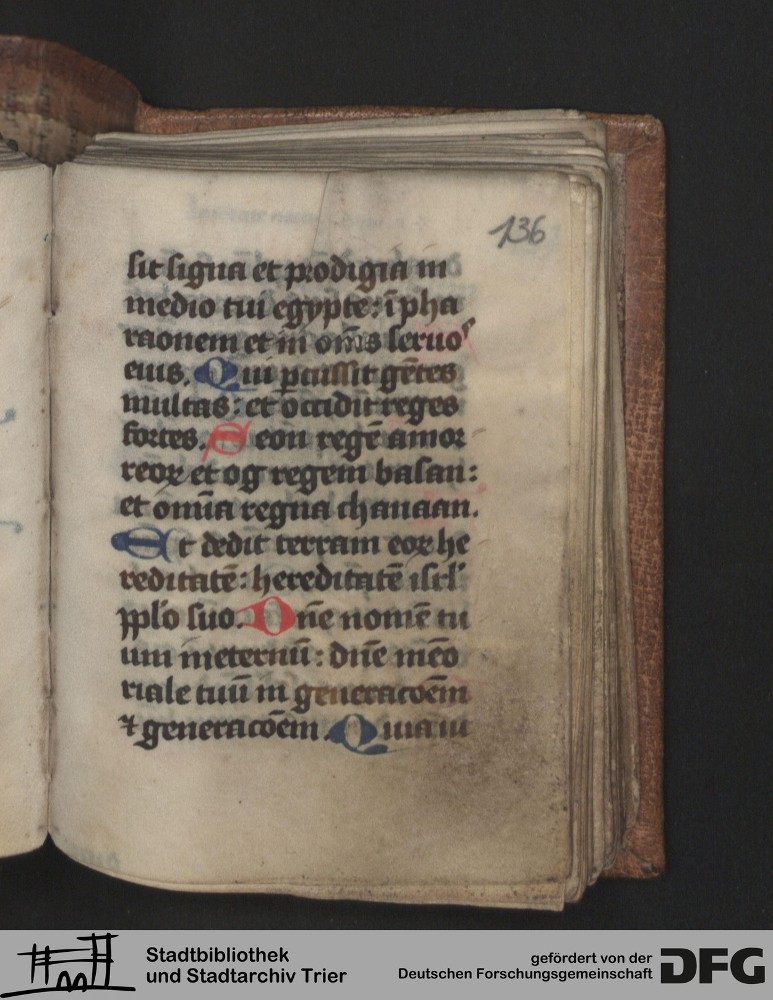 136
sit signa et prodigia in
medio tui egypte: ī pha
raonem et in om̄s seruoˢ
eius. Qui ꝑcussit gētes
multas: et occidit reges
fortes. Seon regē amor
reoꝝ et og regem basan:
et om̄ia regna chanaan.
Et dedit terram eoꝝ he
reditatē: hereditatē isrl'
pplo suo. Dn̄e nomē tu
um ineternū: dn̄e mēo
riale tuū in generacōem
⁊ generacōem. Quia iu
Stadtbibliothek
und Stadtarchiv Trier
gefördert von der
Deutschen Forschungsgemeinschaft
DFG